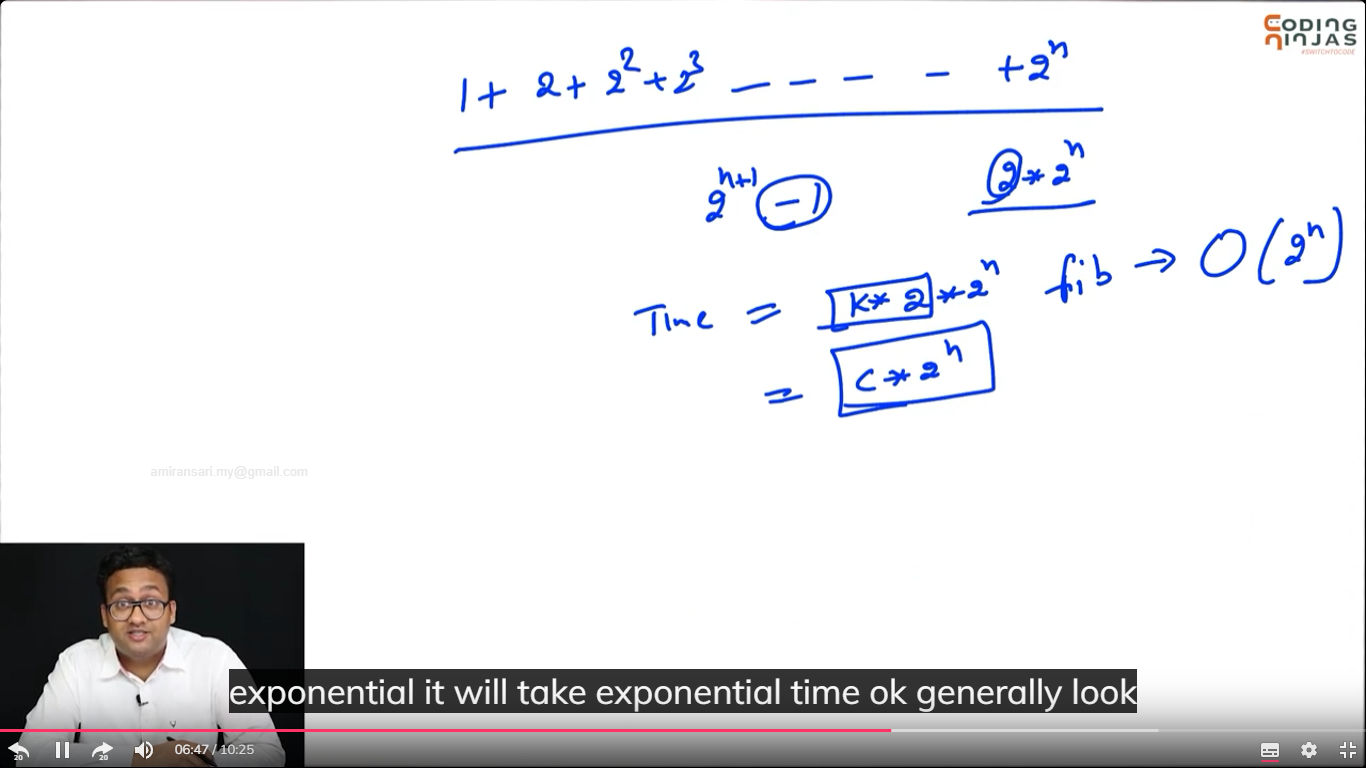 CODING
NINJAS
#SWITCHTOCODE
1 + 2 + 2² + 2³ — — — — + 2ⁿ
2ⁿ⁺¹ - 1
2 * 2ⁿ
Time = K * 2 * 2ⁿ
fib → O(2ⁿ)
= C * 2ⁿ
amiransari.my@gmail.com
exponential it will take exponential time ok generally look
20
20
06:47 / 10:25